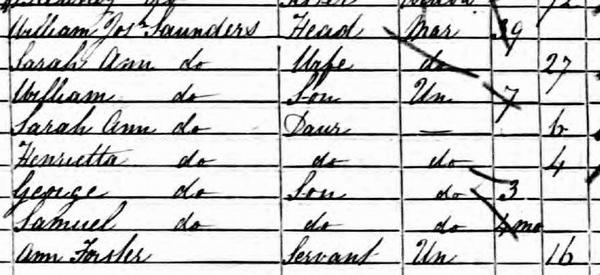 William Jos^h Saunders Head Mar 39
Sarah Ann do Wife do 27
William do Son Un 7
Sarah Ann do Daur — 6
Henrietta do do do 4
George do Son do 3
Samuel do do do 4 mo
Ann Forster Servant Un 16